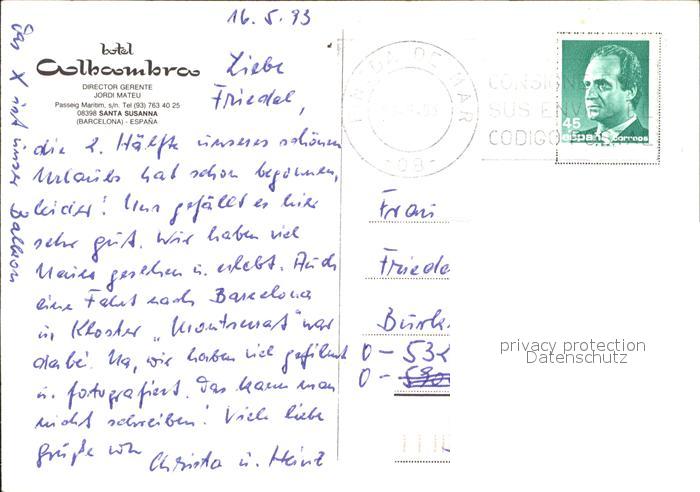 16.5.93
hotel
Alhambra
DIRECTOR GERENTE
JORDI MATEU
Passeig Maritim, s/n. Tel (93) 763 40 25
08398 SANTA SUSANNA
(BARCELONA) - ESPAÑA
Liebe
Friedel,
die 2. Hälfte unseres schönen
Urlaubs hat schon begonnen,
leider! Uns gefällt es hier
sehr gut. Wir haben viel
Neues gesehen u. erlebt. Auch
eine Fahrt nach Barcelona
u. Kloster „Montserrat" war
dabei. Na, wir haben viel gefilmt
u. fotografiert. Das kann man
nicht schreiben! Viele liebe
Grüße von
Christa u. Heinz
Das X ist unser Balkon
DE MAR
-08-
CONSIGNE
SUS ENV
CODIGO
45
españa correos
Frau
Friede
Burk
O - 532
O -
privacy protection
Datenschutz